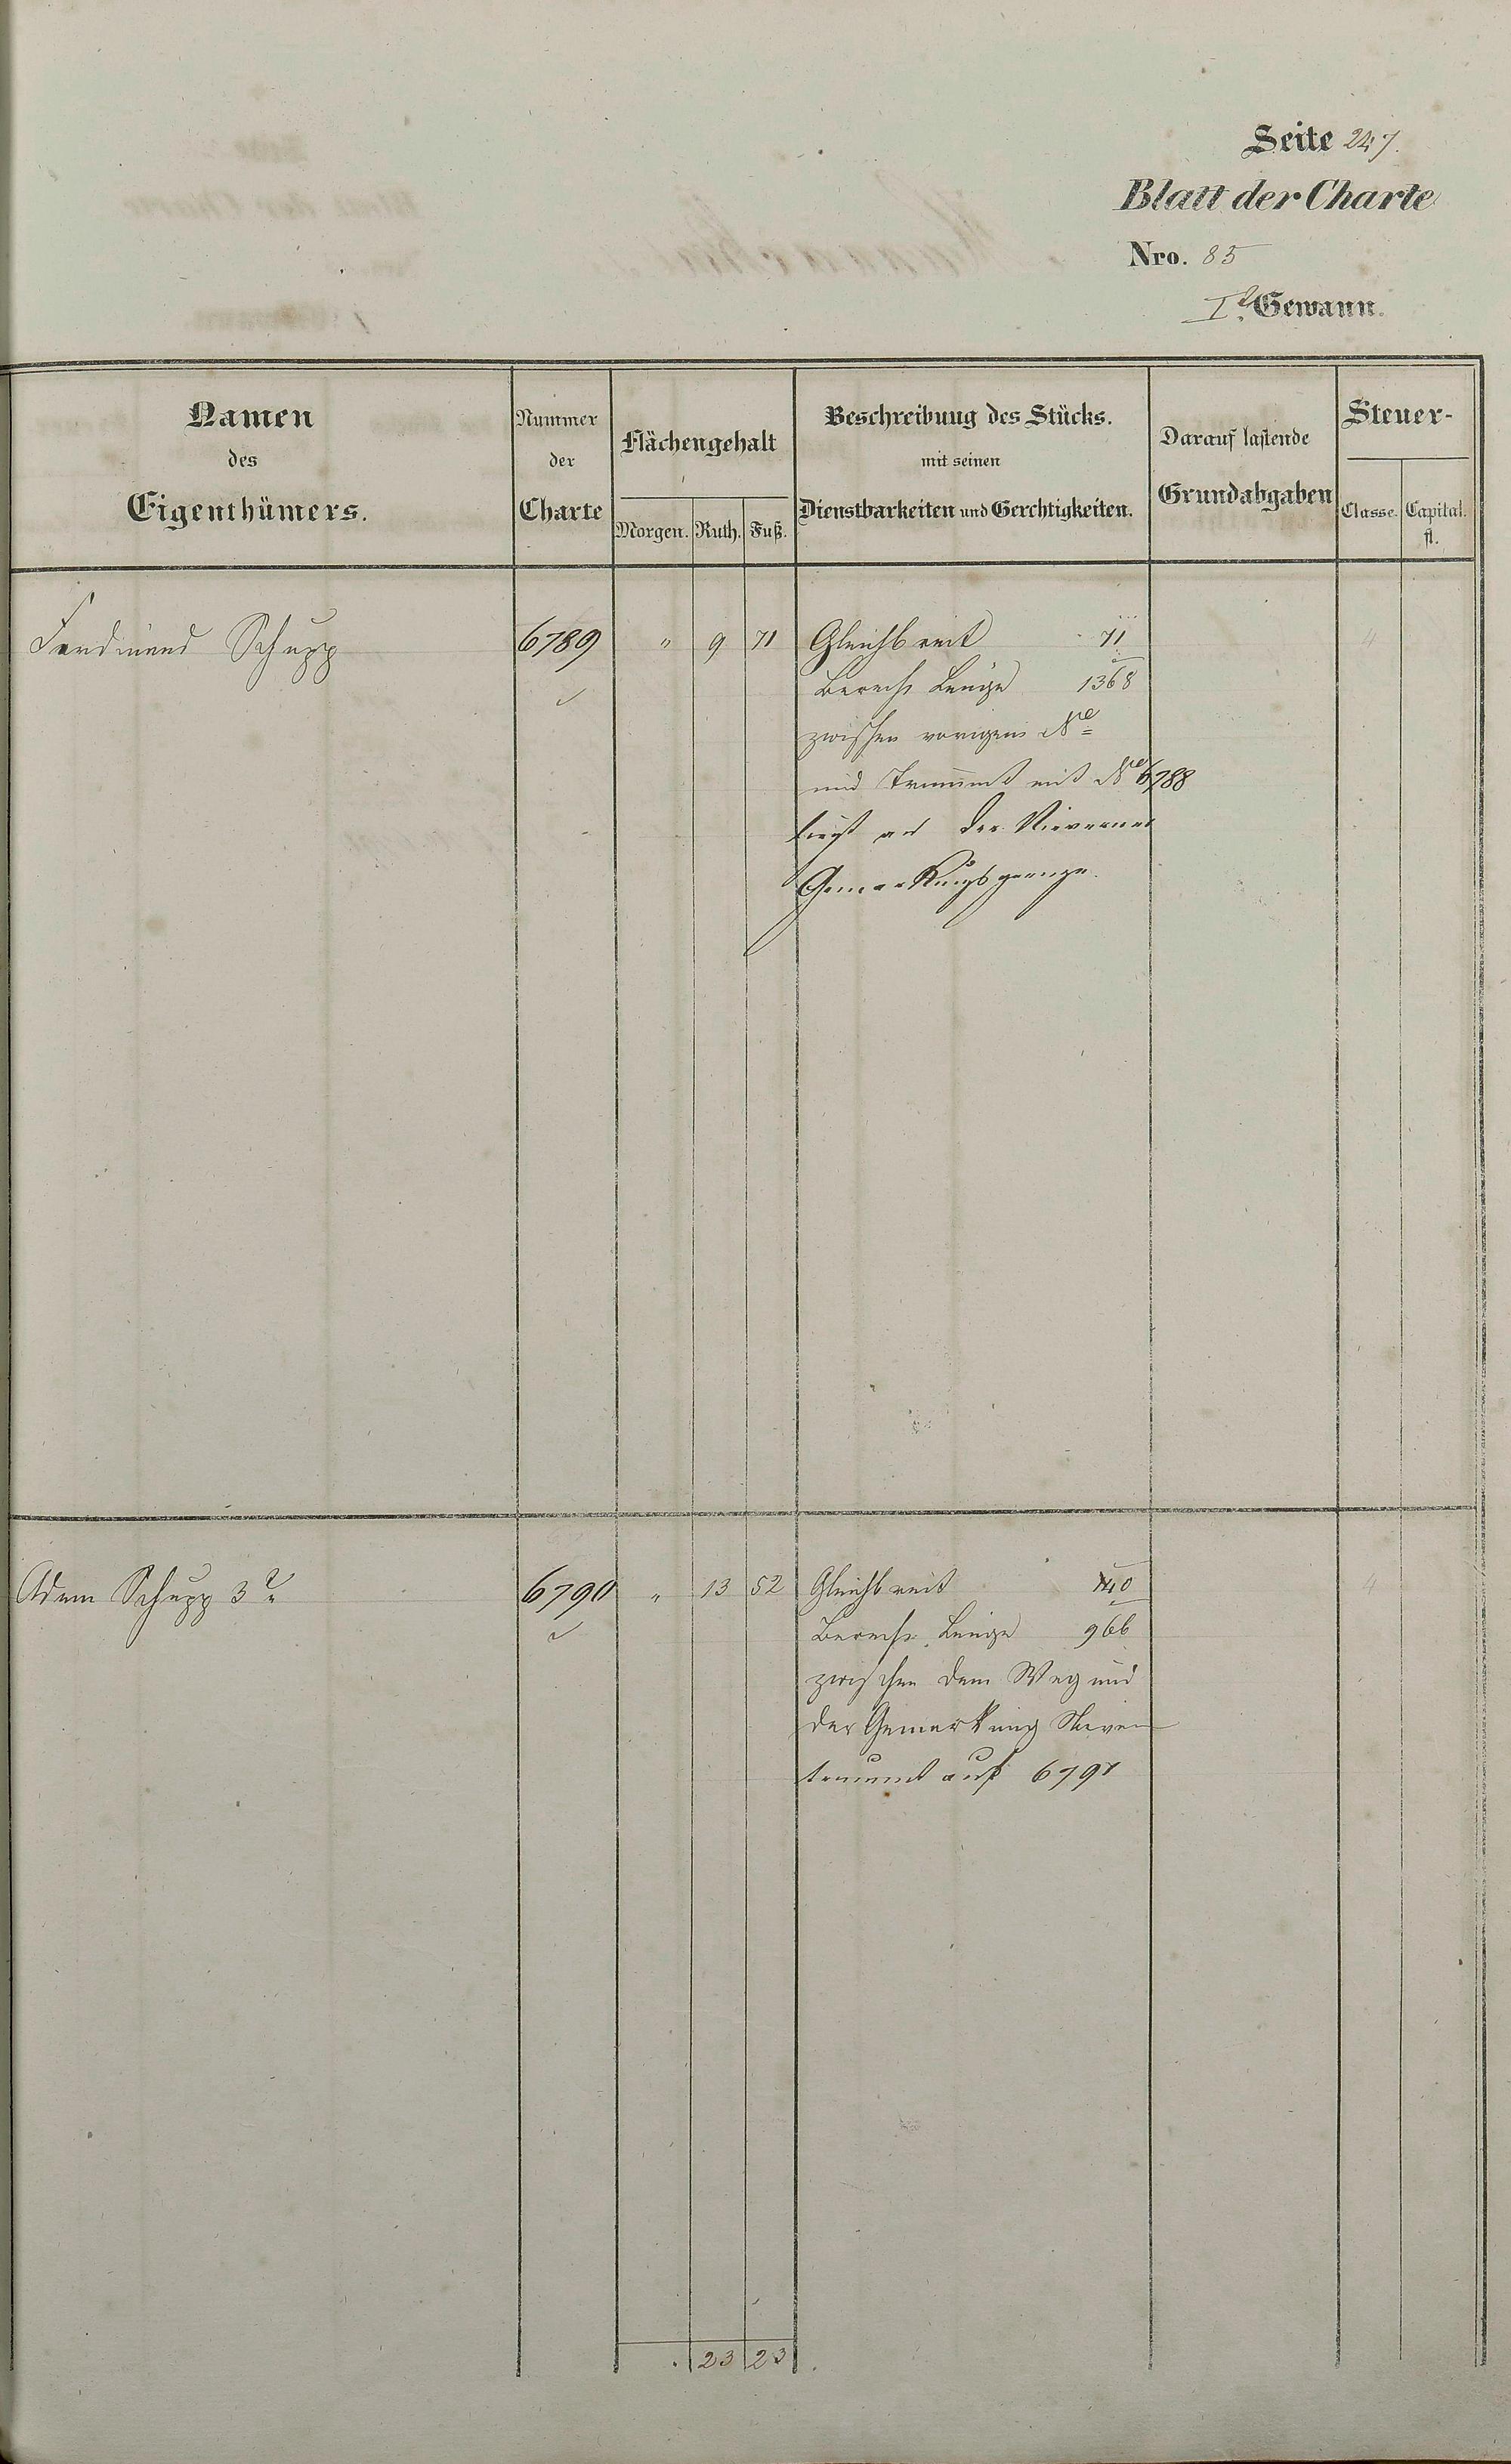 Seite 247.
Blatt der Charte
Nro. 85
I. Gewann.
Namen
des
Eigenthümers.
Nummer
der
Charte
Flächengehalt
Morgen. Ruth. Fuß.
Beschreibung des Stücks.
mit seinen
Dienstbarkeiten und Gerechtigkeiten.
Darauf lastende
Grundabgaben
Steuer-
Classe. Capital.
fl.
Ferdinand Schupp 6789 " 9 71 Gleichbreit 71 4
Berech Länge 1368
zwischen vorigem No
und Trummt mit No 6788
liegt an der Nieverner
Gemarkungsgrenze.
Adam Schupp 3r 6790 " 13 52 Gleichbreit 140 4
Berech. Länge 966
zwischen dem Weg und
der Gemarkung Nievern
trummt auf
. 23 23